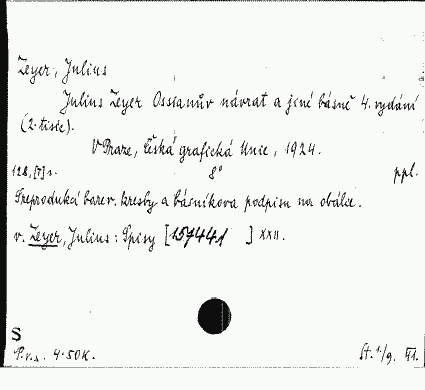 Zeyer, Julius
Julius Zeyer Ossianův návrat a jiné básně 4. vydání
(2. tisíc).
V Praze, Česká grafická Unie, 1924.
128, [7] s. 8° ppl.
S reprodukcí barev. kresby a básníkova podpisu na obálce.
v. Zeyer, Julius: Spisy [157441 ] XXII.
S
P.v.s. 4·50 K. St. 1./9. VI.